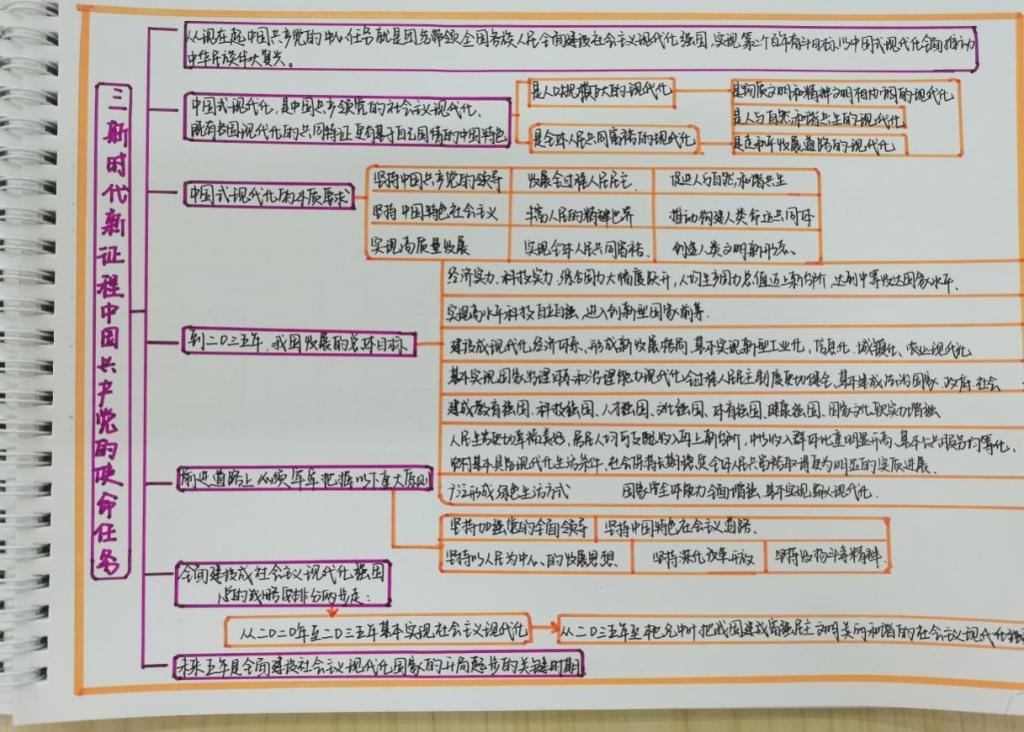 三新时代新证程中国共产党的使命任务
从现在起中国共产党的中心任务就是团结带领全国各族人民全面建设社会主义现代化强国,实现第二个百年奋斗目标,以中国式现代化全面推动
中华民族伟大复兴。
中国式现代化,是中国共产领党的社会主义现代化,
既有各国现代化的共同特征更有基于自己国情的中国特色
是人口规模巨大的现代化
是全体人民共同富裕的现代化
是物质文明和精神文明相协调的现代化
是人与自然和谐共生的现代化
是走和平发展道路的现代化
中国式现代化的本质要求
坚持中国共产党的领导 发展全过程人民民主 促进人与自然和谐共生
坚持中国特色社会主义 丰富人民的精神世界 推动构建人类命运共同体
实现高质量发展 实现全体人民共同富裕。 创造人类文明新形态。
到二〇三五年,我国发展的总体目标
经济实力、科技实力、综合国力大幅度跃升,人均生产国力总值迈上新台阶,达到中等发达国家水平。
实现高水平科技自立自强,进入创新型国家前算
建设成现代化经济体系、形成新发展格局,基本实现新型工业化,信息化、城镇化、农业现代化
基本实现国家治理体系和治理能力现代化全过程人民民主制度更加健全、基本建成法治国家、政府、社会
建成教育强国、科技强国、人才强国、文化强国、体育强国、健康强国、国家文化软实力增强
人民生活更加幸福美好,居民人均可支配收入再上新台阶,中等收入群体比重明显升高、基本公共服务均等化、
农村基本具备现代化生活条件,社会保持长期稳定全体人民共富裕取得更为明显的实质进展。
广泛形成绿色生活方式 国家安全体能力全面增强,基本实现 现代化。
前进道路上必须牢牢把握以下重大原则
坚持加强党的全面领导 坚持中国特色社会主义道路、
坚持以人民为中心、的发展思想、 坚持深化改革开放 坚持发扬斗争精神.
全面建设成社会主义现代化强国
总的战略安排分两步走:
从二〇二〇年至二〇三五年基本实现社会主义现代化
从二〇三五年至本世纪中叶把我国建成富强民主文明美丽和谐的社会主义现代化强
未来五年是全面建设社会主义现代化国家的开局起步的关键时期